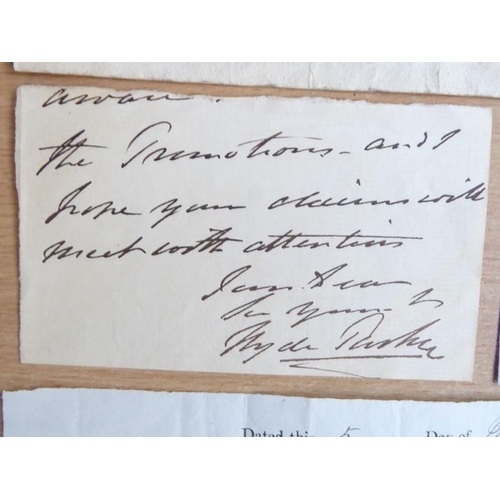 the Promotions - and I
hope your claims will
meet with attention
I am
yours
Hyde Parker
Dated this 5 Day of